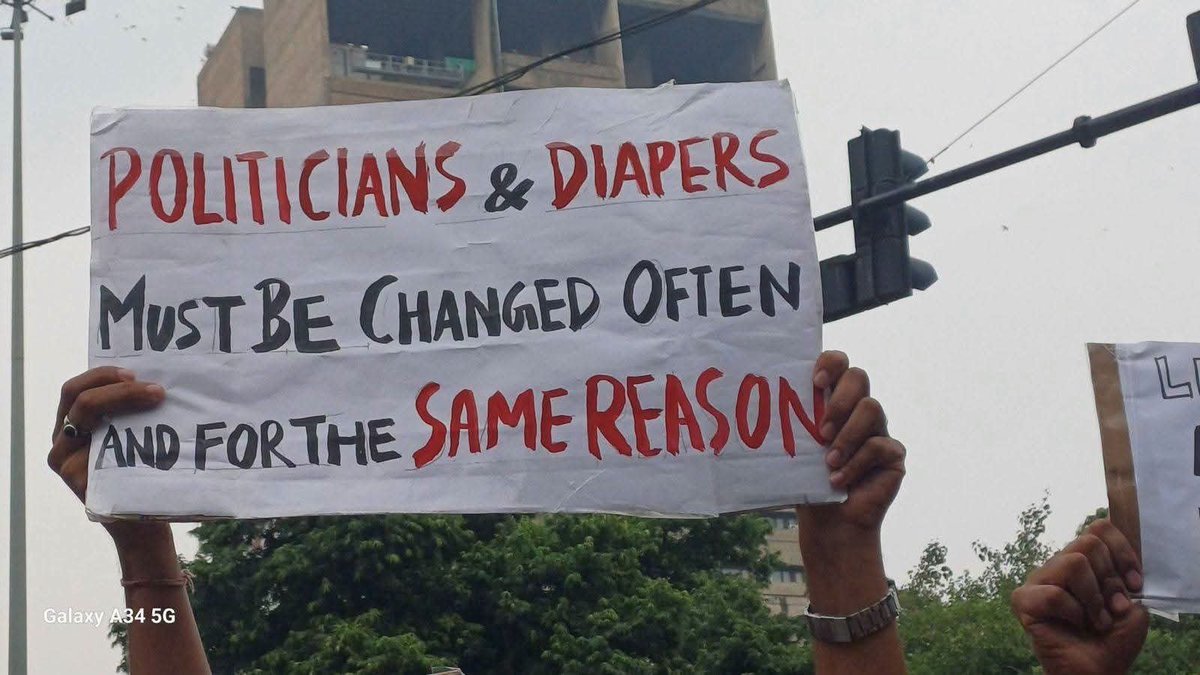 POLITICIANS & DIAPERS
MUST BE CHANGED OFTEN
AND FOR THE SAME REASON
Galaxy A34 5G